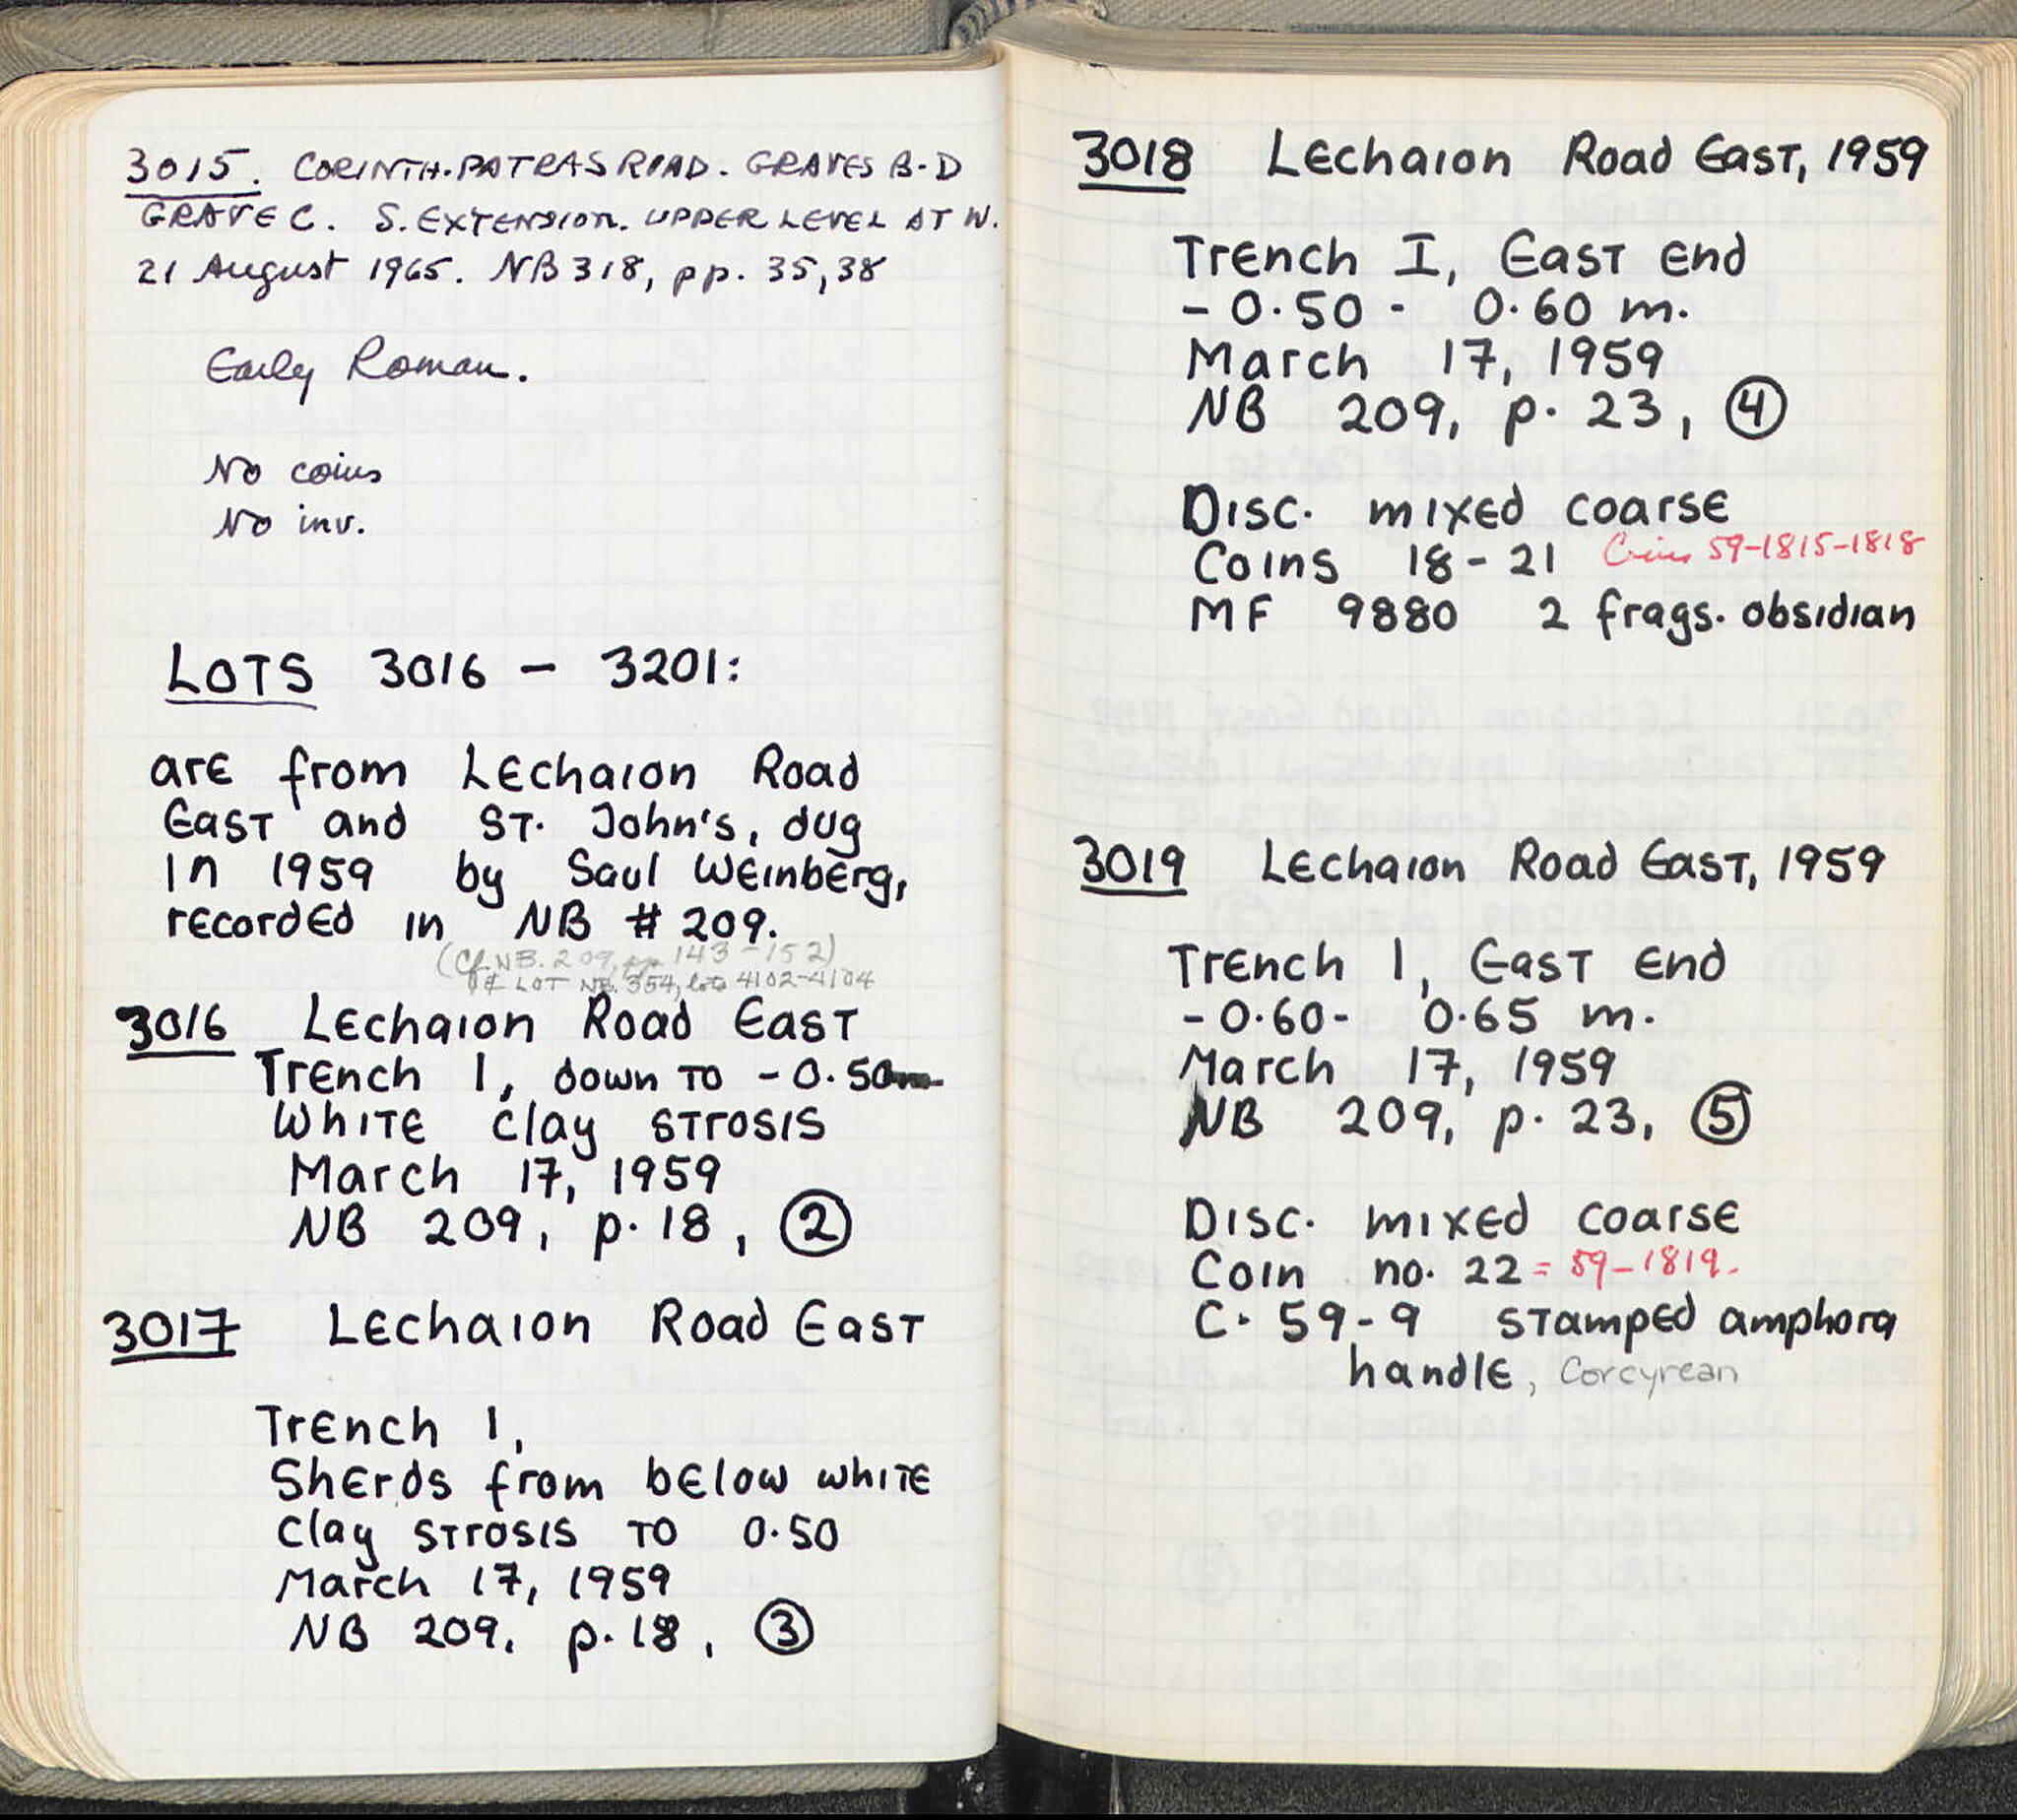 3015. CORINTH-PATRAS ROAD. GRAVES B-D
GRAVE C. S. EXTENSION. UPPER LEVEL AT W.
21 August 1965. NB 318, pp. 35, 38
Early Roman.
No coins
No inv.
LOTS 3016 – 3201:
are from Lechaion Road
East and St. John's, dug
in 1959 by Saul Weinberg,
recorded in NB # 209.
(Cf. NB. 209, pp 143-152)
& LOT NB. 354, lots 4102-4104
3016 Lechaion Road East
Trench 1, down to -0.50m
White clay strosis
March 17, 1959
NB 209, p. 18, ②
3017 Lechaion Road East
Trench 1,
Sherds from below white
clay strosis to 0.50
March 17, 1959
NB 209, p. 18, ③
3018 Lechaion Road East, 1959
Trench I, East end
-0.50 - 0.60 m.
March 17, 1959
NB 209, p. 23, ④
Disc. mixed coarse
Coins 18-21 Coins 59-1815-1818
MF 9880 2 frags. obsidian
3019 Lechaion Road East, 1959
Trench 1, East end
-0.60- 0.65 m.
March 17, 1959
NB 209, p. 23, ⑤
Disc. mixed coarse
Coin no. 22 = 59-1819-
C. 59-9 stamped amphora
handle, Corcyrean